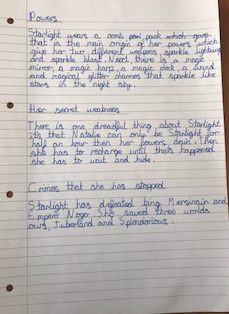 Powers
Starlight wears a comb pack which gave
that is the main origin of her powers which
give her two different weapons, sparkle lightning
and sparkle blast. Next there is a magic
mirror, a magic hard, a magic desk, a wand
and magical glitter charms that sparkle like
stars in the night sky.
Her secret weakness
There is one dreadful thing about Starlight
Its that Natalie can only be Starlight for
half an hour then her powers again. Then
she has to recharge until thats happened
she has to unit and hide.
Crimes that she has stopped
Starlight has defeated king
Emperor Nogo. She saved three worlds
ours, and Splendorious.